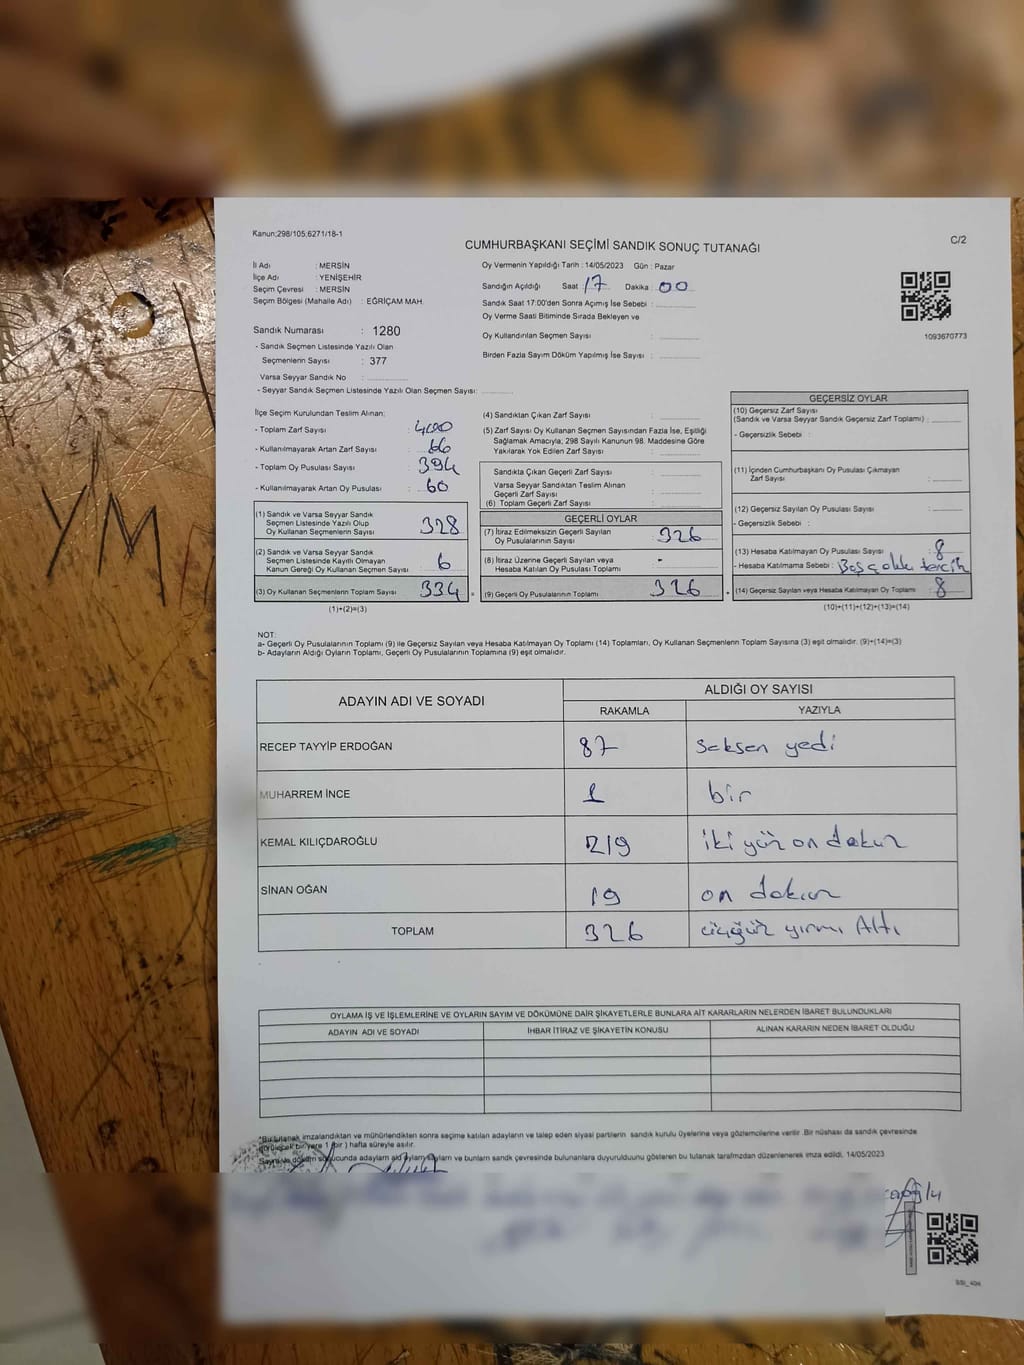 Kanun;298/105;6271/18-1
CUMHURBAŞKANI SEÇİMİ SANDIK SONUÇ TUTANAĞI
C/2
İl Adı : MERSİN
İlçe Adı : YENİŞEHİR
Seçim Çevresi : MERSİN
Seçim Bölgesi (Mahalle Adı) : EĞRİÇAM MAH.
Oy Vermenin Yapıldığı Tarih : 14/05/2023 Gün : Pazar
Sandığın Açıldığı Saat 17 Dakika 00
Sandık Saat 17:00'den Sonra Açımış İse Sebebi :
Oy Verme Saati Bitiminde Sırada Bekleyen ve
Oy Kullandırılan Seçmen Sayısı :
Birden Fazla Sayım Döküm Yapılmış İse Sayısı :
1093670773
Sandık Numarası : 1280
- Sandık Seçmen Listesinde Yazılı Olan
Seçmenlerin Sayısı : 377
Varsa Seyyar Sandık No :
- Seyyar Sandık Seçmen Listesinde Yazılı Olan Seçmen Sayısı:
İlçe Seçim Kurulundan Teslim Alınan;
- Toplam Zarf Sayısı : 400
- Kullanılmayarak Artan Zarf Sayısı : 66
- Toplam Oy Pusulası Sayısı : 394
- Kullanılmayarak Artan Oy Pusulası : 60
(1) Sandık ve Varsa Seyyar Sandık
Seçmen Listesinde Yazılı Olup
Oy Kullanan Seçmenlerin Sayısı 328
(2) Sandık ve Varsa Seyyar Sandık
Seçmen Listesinde Kayıtlı Olmayan
Kanun Gereği Oy Kullanan Seçmen Sayısı 6
(3) Oy Kullanan Seçmenlerin Toplam Sayısı 334
(1)+(2)=(3)
(4) Sandıktan Çıkan Zarf Sayısı :
(5) Zarf Sayısı Oy Kullanan Seçmen Sayısından Fazla İse, Eşitliği
Sağlamak Amacıyla; 298 Sayılı Kanunun 98. Maddesine Göre
Yakılarak Yok Edilen Zarf Sayısı :
Sandıkta Çıkan Geçerli Zarf Sayısı :
Varsa Seyyar Sandıktan Teslim Alınan
Geçerli Zarf Sayısı :
(6) Toplam Geçerli Zarf Sayısı :
GEÇERLİ OYLAR
(7) İtiraz Edilmeksizin Geçerli Sayılan
Oy Pusulalarının Sayısı: 326
(8) İtiraz Üzerine Geçerli Sayılan veya
Hesaba Katılan Oy Pusulası Toplamı : -
(9) Geçerli Oy Pusulalarının Toplamı 326
GEÇERSİZ OYLAR
(10) Geçersiz Zarf Sayısı
(Sandık ve Varsa Seyyar Sandık Geçersiz Zarf Toplamı) :
- Geçersizlik Sebebi :
(11) İçinden Cumhurbaşkanı Oy Pusulası Çıkmayan
Zarf Sayısı :
(12) Geçersiz Sayılan Oy Pusulası Sayısı :
- Geçersizlik Sebebi :
(13) Hesaba Katılmayan Oy Pusulası Sayısı : 8
- Hesaba Katılmama Sebebi : Boş çoklu tercih
(14) Geçersiz Sayılan veya Hesaba Katılmayan Oy Toplamı : 8
(10)+(11)+(12)+(13)=(14)
NOT:
a- Geçerli Oy Pusulalarının Toplamı (9) ile Geçersiz Sayılan veya Hesaba Katılmayan Oy Toplamı (14) Toplamları, Oy Kullanan Seçmenlerin Toplam Sayısına (3) eşit olmalıdır. (9)+(14)=(3)
b- Adayların Aldığı Oyların Toplamı, Geçerli Oy Pusulalarının Toplamına (9) eşit olmalıdır.
ADAYIN ADI VE SOYADI ALDIĞI OY SAYISI
RAKAMLA YAZIYLA
RECEP TAYYİP ERDOĞAN 87 seksen yedi
MUHARREM İNCE 1 bir
KEMAL KILIÇDAROĞLU 219 iki yüz on dokuz
SİNAN OĞAN 19 on dokuz
TOPLAM 326 üçyüz yirmi Altı
OYLAMA İŞ VE İŞLEMLERİNE VE OYLARIN SAYIM VE DÖKÜMÜNE DAİR ŞİKAYETLERLE BUNLARA AİT KARARLARIN NELERDEN İBARET BULUNDUKLARI
ADAYIN ADI VE SOYADI İHBAR İTİRAZ VE ŞİKAYETİN KONUSU ALINAN KARARIN NEDEN İBARET OLDUĞU
*Bu tutanak imzalandıktan ve mühürlendikten sonra seçime katılan adayların ve talep eden siyasi partilerin sandık kurulu üyelerine veya gözlemcilerine verilir. Bir nüshası da sandık çevresinde
görülecek bir yere 1 (bir) hafta süreyle asılır.
ve bunların sandık çevresinde bulunanlara duyurulduunu gösteren bu tutanak tarafımızdan düzenlenerek imza edildi. 14/05/2023
YM